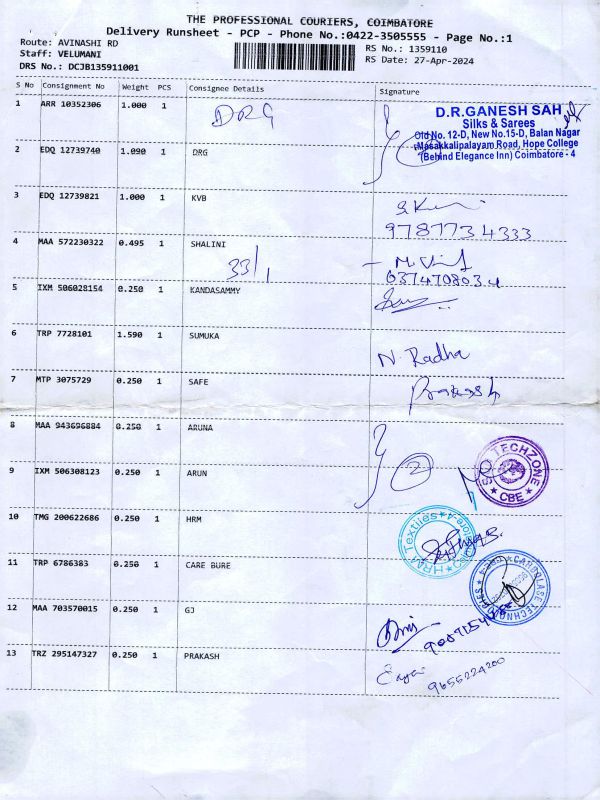 THE PROFESSIONAL COURIERS, COIMBATORE
Delivery Runsheet - PCP - Phone No.:0422-3505555 - Page No.:1
Route: AVINASHI RD
Staff: VELUMANI
DRS No.: DCJB135911001
RS No.: 1359110
RS Date: 27-Apr-2024
S No Consignment No Weight PCS Consignee Details Signature
1 ARR 10352306 1.000 1 DRG
D.R.GANESH SAH
Silks & Sarees
Old No. 12-D, New No.15-D, Balan Nagar
Masakkalipalayam Road, Hope College
(Behind Elegance Inn) Coimbatore - 4
2 EDQ 12739740 1.090 1 DRG
3 EDQ 12739821 1.000 1 KVB
9787734333
4 MAA 572230322 0.495 1 SHALINI
33/1
0374708034
5 IXM 506028154 0.250 1 KANDASAMMY
6 TRP 7728101 1.590 1 SUMUKA
N. Radha
7 MTP 3075729 0.250 1 SAFE
Prakash
8 MAA 943696884 0.250 1 ARUNA
2
TECHZONE
★ CBE ★
9 IXM 506308123 0.250 1 ARUN
10 TMG 200622686 0.250 1 HRM
HRM Textiles
11 TRP 6786383 0.250 1 CARE BURE
12 MAA 703570015 0.250 1 GJ
13 TRZ 295147327 0.250 1 PRAKASH
9655224200